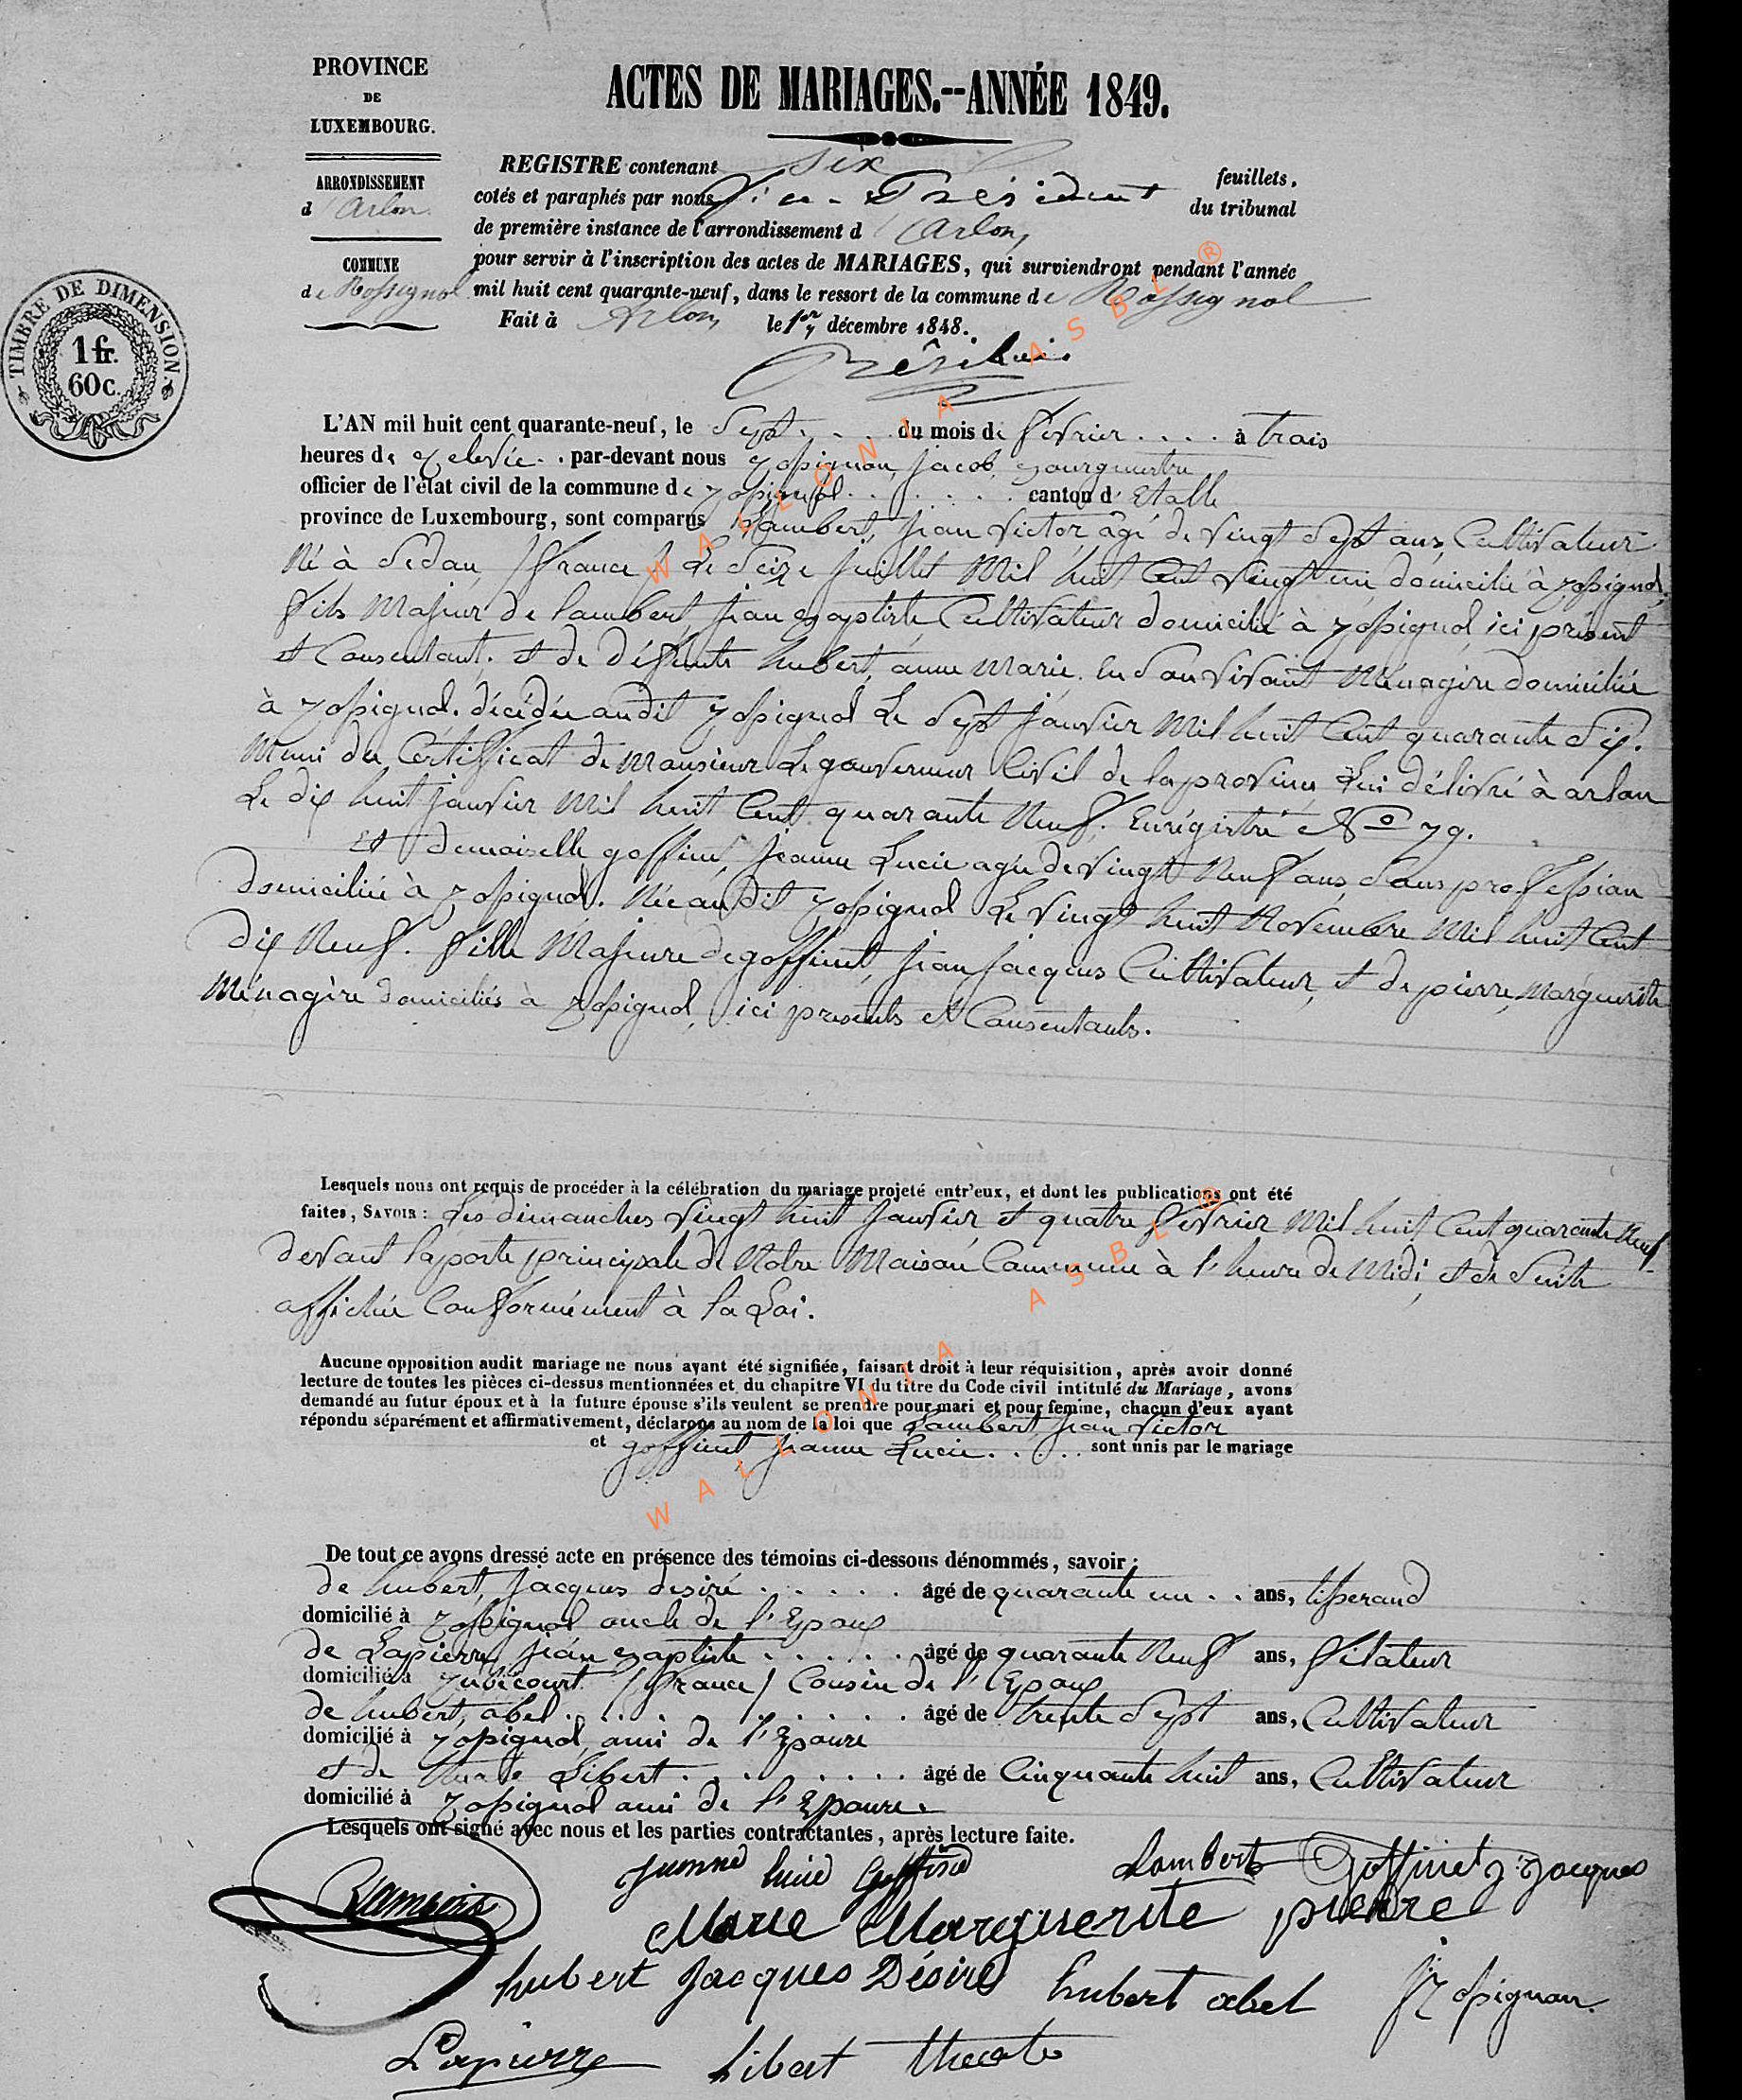 PROVINCE
DE
LUXEMBOURG.
ARRONDISSEMENT
d'Arlon.
COMMUNE
de Rossignol
TIMBRE DE DIMENSION
1 fr.
60c.
ACTES DE MARIAGES.--ANNÉE 1849.
REGISTRE contenant six feuillets,
cotés et paraphés par nous Président du tribunal
de première instance de l'arrondissement d'Arlon,
pour servir à l'inscription des actes de MARIAGES, qui surviendront pendant l'année
mil huit cent quarante-neuf, dans le ressort de la commune de Rossignol
Fait à Arlon, le 1er décembre 1848.
L'AN mil huit cent quarante-neuf, le Sept . . . du mois de février . . . . à trois
heures de relevée . . par-devant nous Rossignon, Jacob, Bourguestre
officier de l'état civil de la commune de Rossignol . . . . . . canton d'Etalle
province de Luxembourg, sont comparus Lambert, Jean Victor âgé de vingt Sept ans, Cultivateur
Né à Sedan, (france) Le Seize Juillet Mil huit Cent vingt un, domicilié à Rossignol,
fils Majeur de Lambert, Jean Baptiste, Cultivateur domicilié à Rossignol, ici présent
et Consentant. et de défunte hubert, anne Marie. en Son vivant Ménagère domiciliée
à Rossignol. décédée audit Rossignol Le Sept Janvier Mil huit Cent quarante Six.
Muni du Certificat de Monsieur Le gouverneur Civil de la province Lui délivré à arlon
Le dix huit Janvier Mil huit Cent quarante Neuf. Enrégistré No 79.
Et demoiselle goffinet Jeanne Lucie agée de vingt Neuf ans, Sans profession
domiciliée à Rossignol. Née audit Rossignol Le vingt huit Novembre Mil huit Cent
dix Neuf. fille Majeure de goffinet, Jean Jacques Cultivateur, et de pierre, Marguerite
Ménagère domiciliés à Rossignol, ici présents et Consentants.
Lesquels nous ont requis de procéder à la célébration du mariage projeté entr'eux, et dont les publications ont été
faites, SAVOIR: Les dimanches vingt huit Janvier, et quatre février Mil huit Cent quarante Neuf
devant la porte principale de Notre Maison Commune à l'heure de Midi, et de Suite
affichée Conformément à la Loi.
Aucune opposition audit mariage ne nous ayant été signifiée, faisant droit à leur réquisition, après avoir donné
lecture de toutes les pièces ci-dessus mentionnées et du chapitre VI du titre du Code civil intitulé du Mariage, avons
demandé au futur époux et à la future épouse s'ils veulent se prendre pour mari et pour femme, chacun d'eux ayant
répondu séparément et affirmativement, déclarons au nom de la loi que Lambert, Jean Victor
et goffinet Jeanne Lucie. . . . . sont unis par le mariage
De tout ce avons dressé acte en présence des témoins ci-dessous dénommés, savoir:
de hubert, Jacques desiré . . . . . âgé de quarante un . . ans, tisserand
domicilié à Rossignol oncle de l'Epoux
de Lapierre, Jean Baptiste . . . . . âgé de quarante Neuf ans, filateur
domicilié à Rubécourt (france) Cousin de l'Epoux
de hubert, abel . . . . . . . . . âgé de trente Sept ans, Cultivateur
domicilié à Rossignol, ami de l'Epouse
et de Libert . . . . . . . . âgé de Cinquante huit ans, Cultivateur
domicilié à Rossignol ami de l'Epouse.
Lesquels ont signé avec nous et les parties contractantes, après lecture faite.
Jeanne lucie Goffinet Lambert Goffinet J. Jacques
Marie Marguerite pierre
hubert Jacques Désiré hubert abel J Rossignon
Lapierre Libert
WALLONIA ASBL ®
WALLONIA ASBL ®